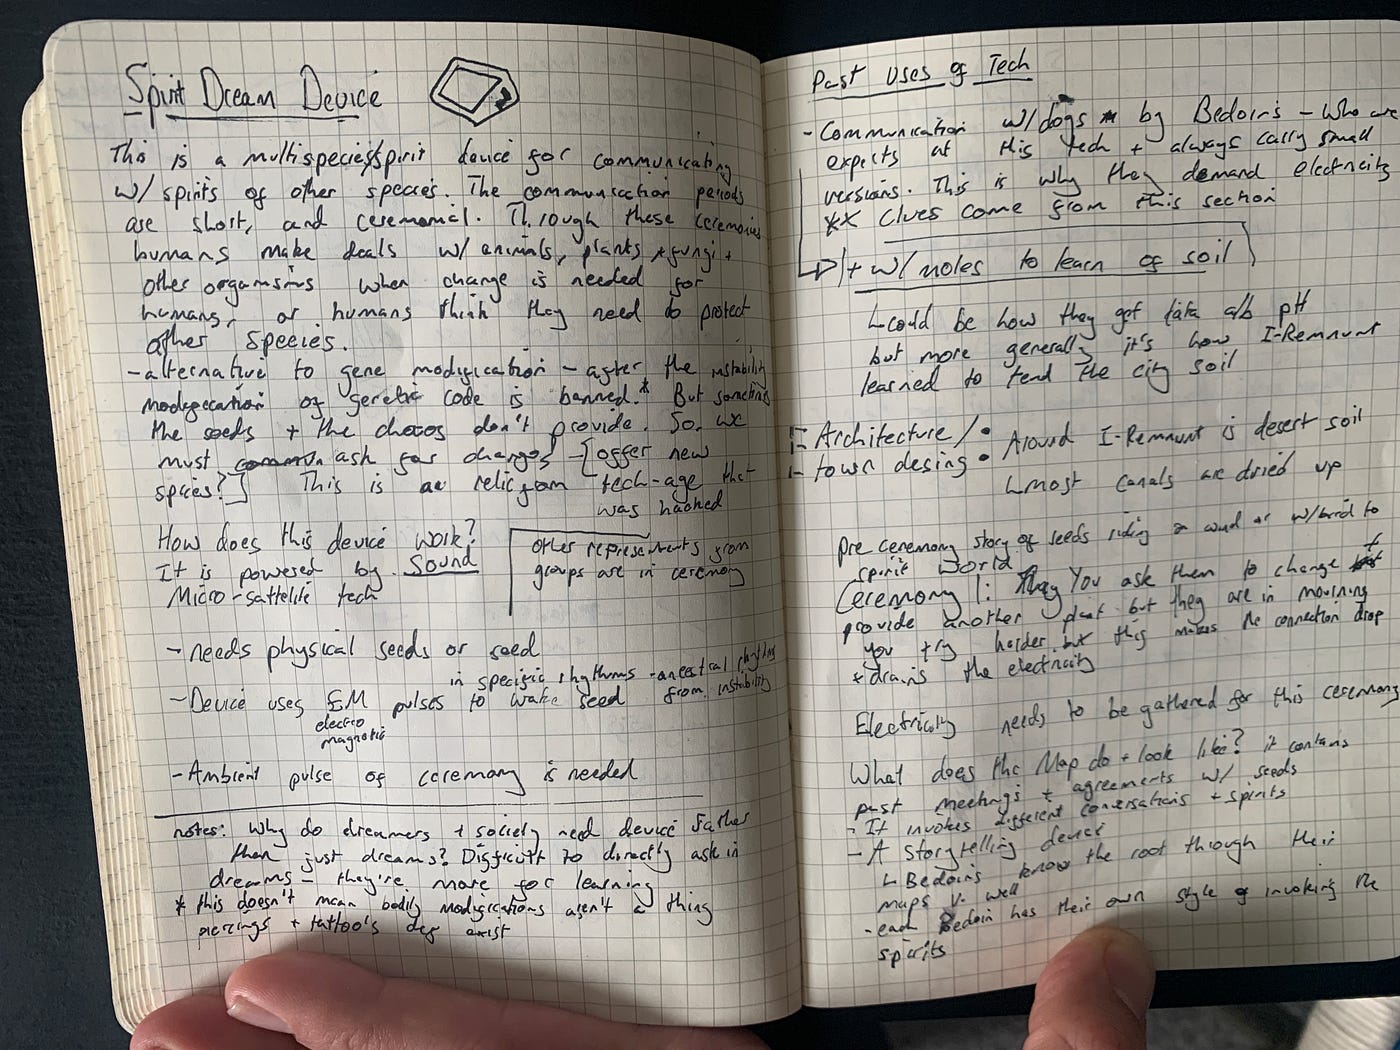 Spirit Dream Device
This is a multispecies/spirit device for communicating
w/ spirits of other species. The communication periods
are short, and ceremonial. Through these ceremonies
humans make deals w/ animals, plants, + fungi +
other organisms when change is needed for
humans, or humans think they need to protect
other species.
-alternative to gene modification - after the instability
modification of genetic code is banned.* But sometimes
the seeds + the don't provide. So, we
must ask for changes - [offer new
spices?] This is a relic from tech-age that
was hacked
How does this device work?
It is powered by Sound
Micro-sattelite tech
other from
groups are in ceremony
- needs physical seeds or seed
in specific rhythms - ancestral
- Device uses EM pulses to wake seed from instability
electro
magnetic
- Ambient pulse of ceremony is needed
notes: Why do dreamers + society need device rather
then just dreams? Difficult to directly ask in
dreams - they're more for learning
* this doesn't mean bodily modifications aren't a thing
piercings + tattoo's exist
Past Uses of Tech
- Communication w/dogs by Bedoin's - Who are
experts at this tech + always carry small
versions. This is why they demand electricity
** Clues come from this section
+ w/ moles to learn of soil
could be how they got data a/b pH
but more generally it's how I-Remnunt
learned to tend the city soil
Architecture/
town desing
• Around I-Remnunt is desert soil
most canals are dried up
Pre ceremony story of seeds riding wind or w/bird to
spirit world
Ceremony 1: You ask them to change +
provide another plant but they are in mourning
you try harder but this makes the connection drop
+ drains the electricity
Electricity needs to be gathered for this ceremony
What does the Map do + look like? it contains
past meetings + agreements w/ seeds
- It invokes different conversations + spirits
- A storytelling device
Bedoins know the root through their
maps v. well
- each Bedoin has their own style of invoking the
spirits